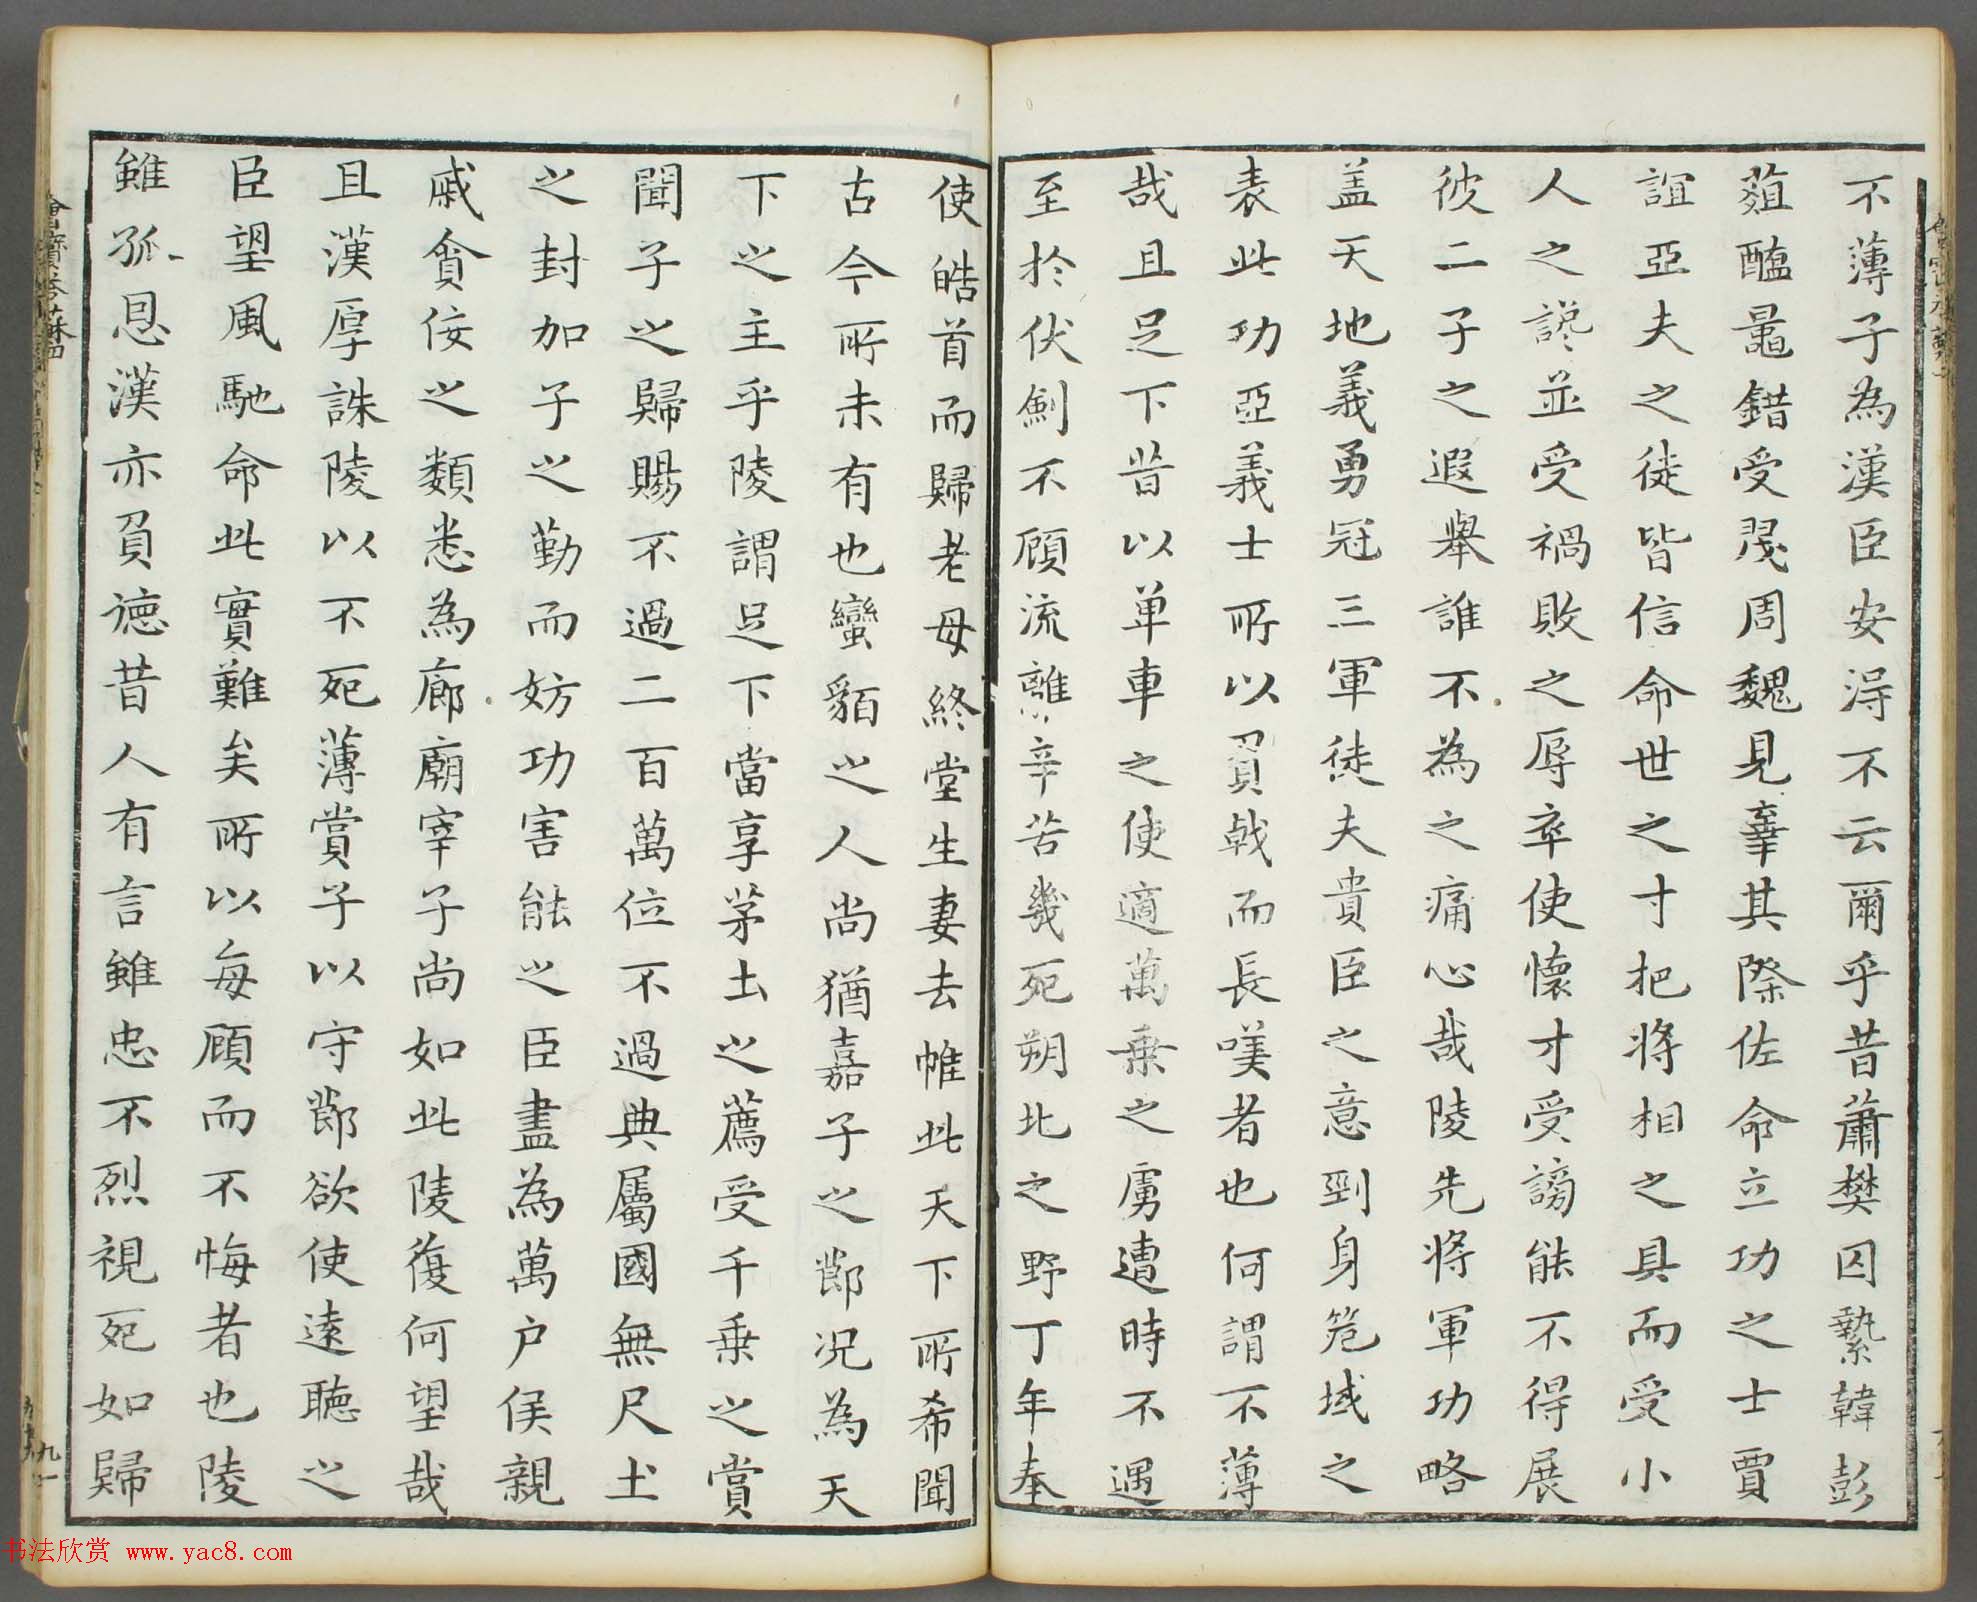 不薄子為漢臣安淂不云爾乎昔蕭樊囚縶韓彭
葅醢鼂錯受戮周魏見辜其際佐命立功之士賈
誼亞夫之徒皆信命世之寸把將相之具而受小
人之讒並受禍敗之辱卒使懷才受謗能不得展
彼二子之遐舉誰不為之痛心哉陵先將軍功略
盖天地義勇冠三軍徒夫貴臣之意剄身䇶域之
表此功亞義士所以負戟而長嘆者也何謂不薄
哉且足下昔以单車之使適萬乗之虜遭時不遇
至於伏劍不顧流離辛苦幾死朔北之野丁年奉
使皓首而歸老母終堂生妻去帷此天下所希聞
古今所未有也蠻貊之人尚猶嘉子之節况為天
下之主乎陵謂足下當享茅土之薦受千乗之賞
聞子之歸賜不過二百萬位不過典屬國無尺土
之封加子之勤而妨功害能之臣盡為萬户侯親
戚貪佞之類悉為廊廟宰子尚如此陵復何望哉
且漢厚誅陵以不死薄賞子以守節欲使遠聽之
臣望風馳命此實難矣所以每顧而不悔者也陵
雖孤恩漢亦負德昔人有言雖忠不烈視死如歸
書法欣赏 www.yac8.com